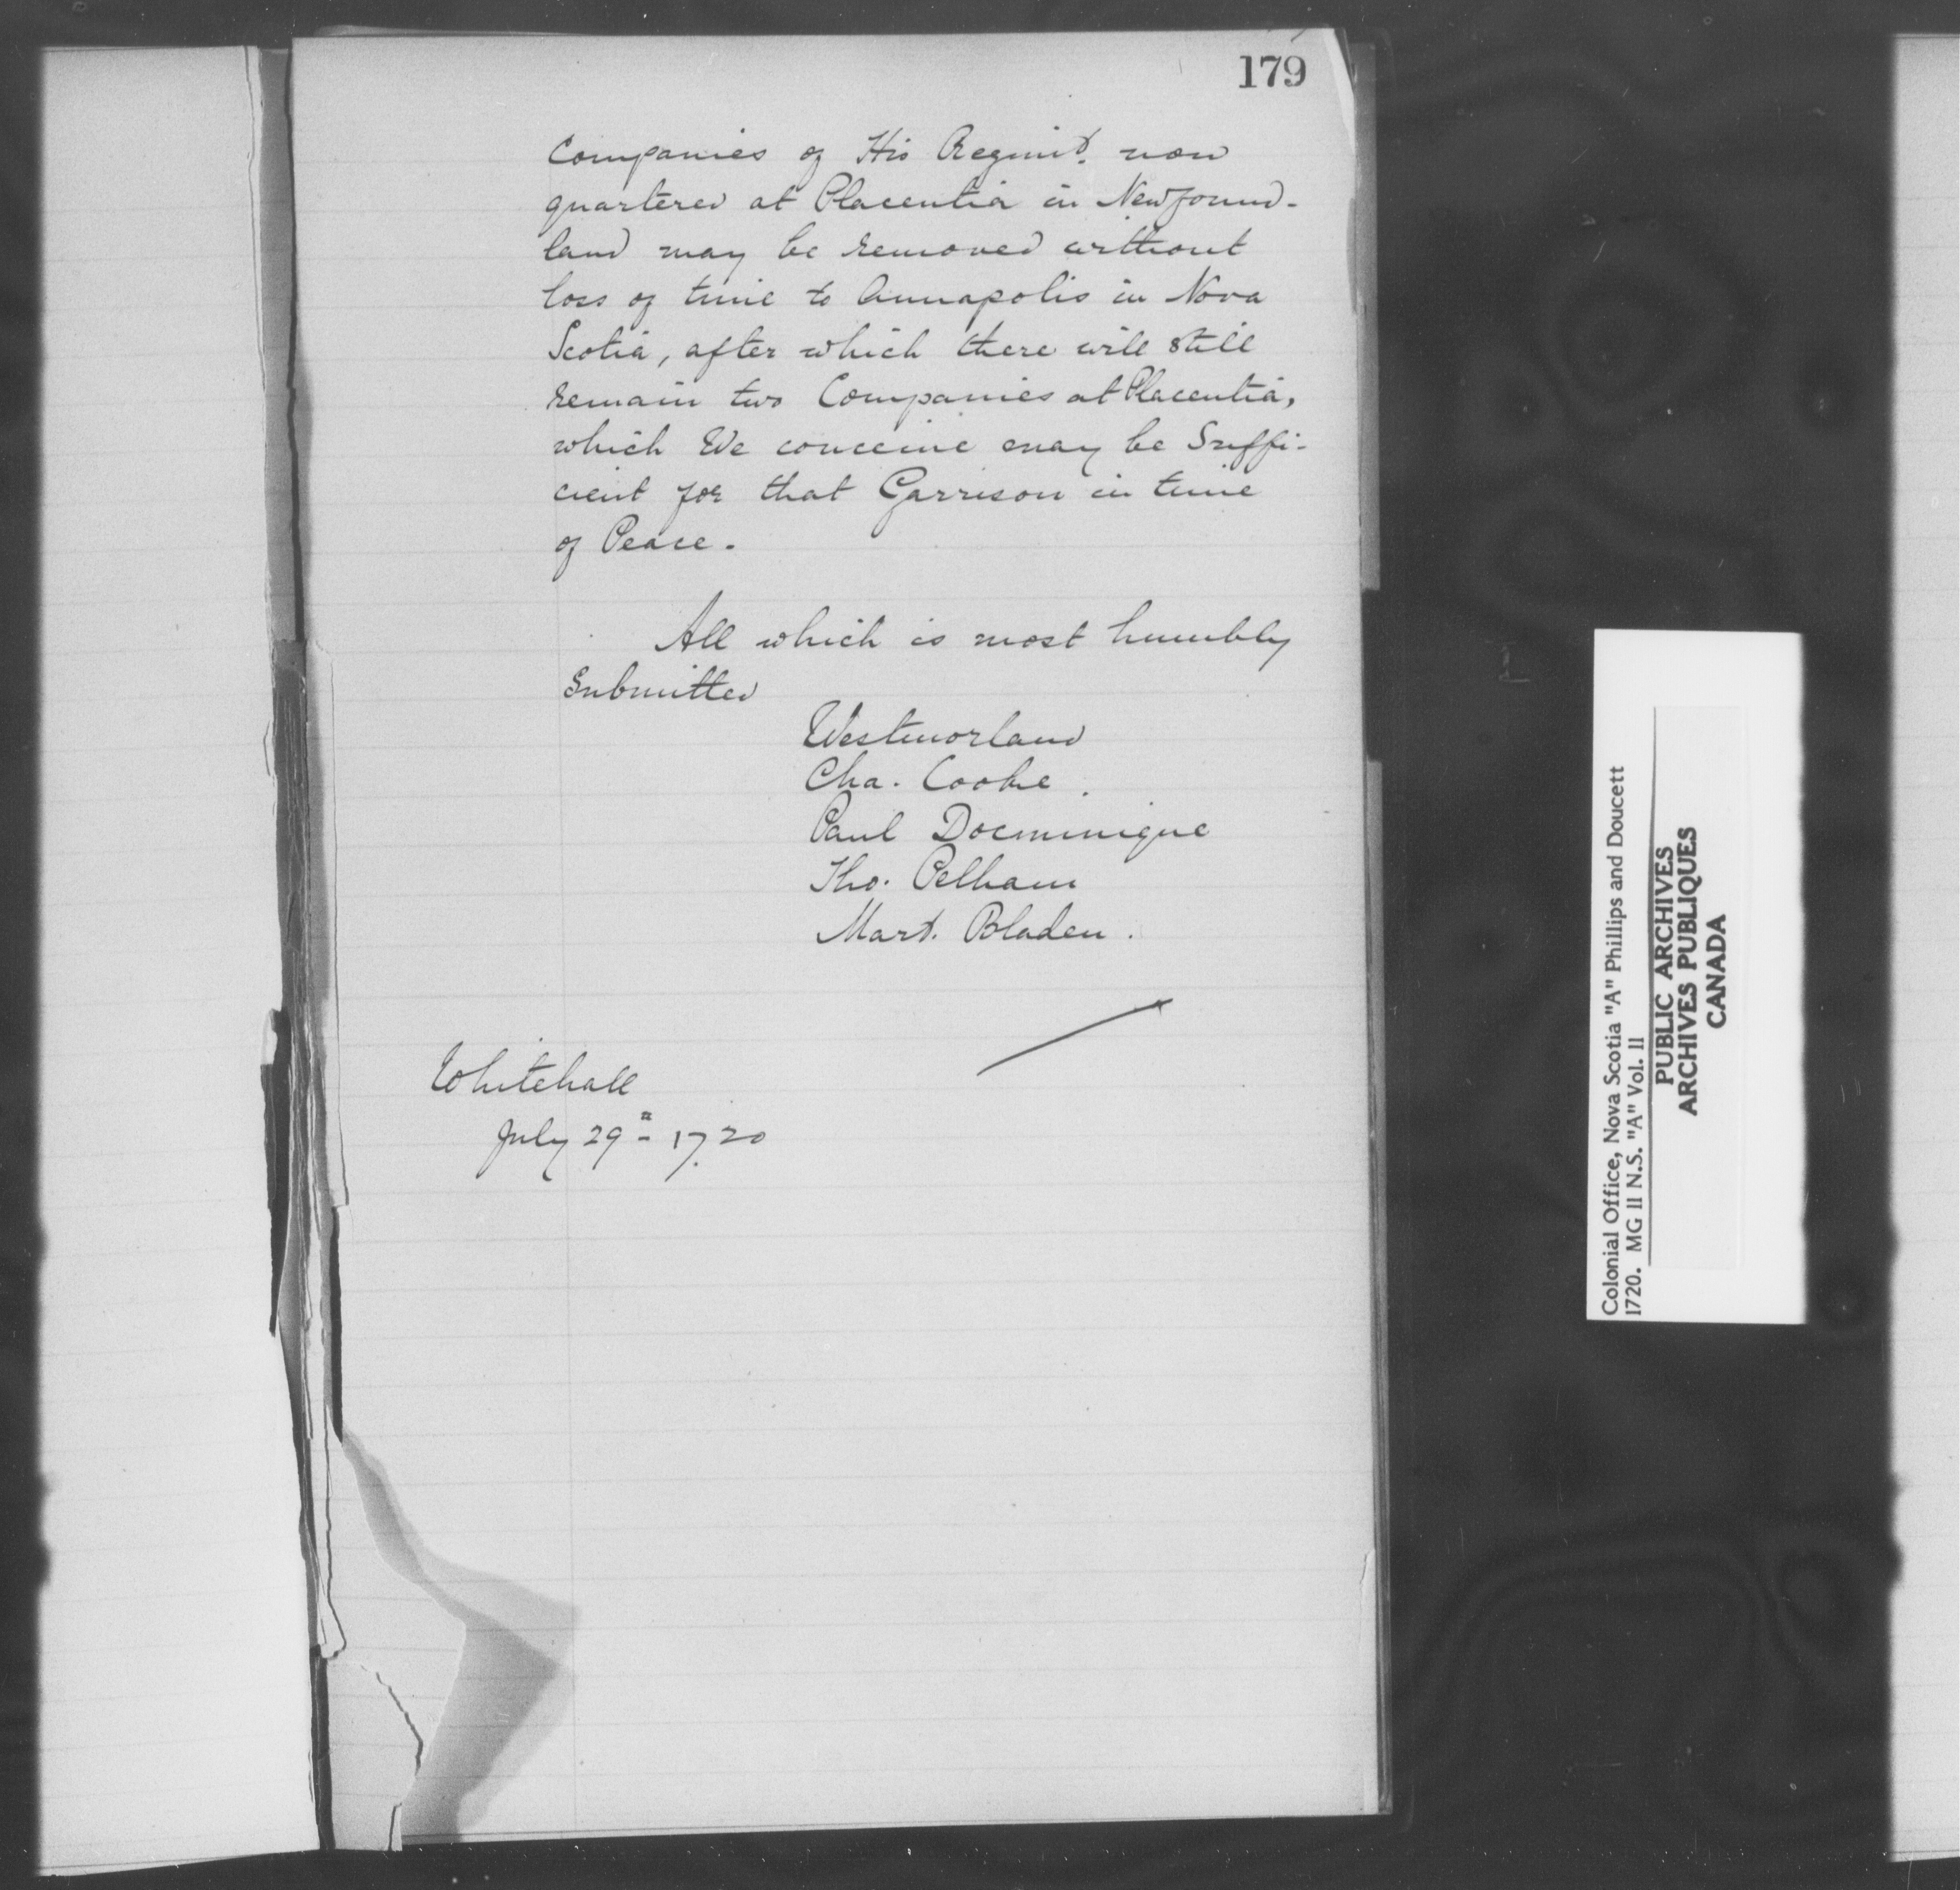 179
Companies of His Regimt. now
quartered at Placentia in Newfound-
land may be removed without
loss of time to Annapolis in Nova
Scotia, after which there will still
remain two Companies at Placentia,
which We conceive may be Suffi-
cient for that Garrison in time
of Peace.
All which is most humbly
Submitted
Westmorland
Cha. Cooke.
Paul Docminique
Tho. Pelham
Mart. Bladen.
Whitehall
July 29th 1720
Colonial Office, Nova Scotia "A" Phillips and Doucett
1720. MG 11 N.S. "A" Vol. 11
PUBLIC ARCHIVES
ARCHIVES PUBLIQUES
CANADA